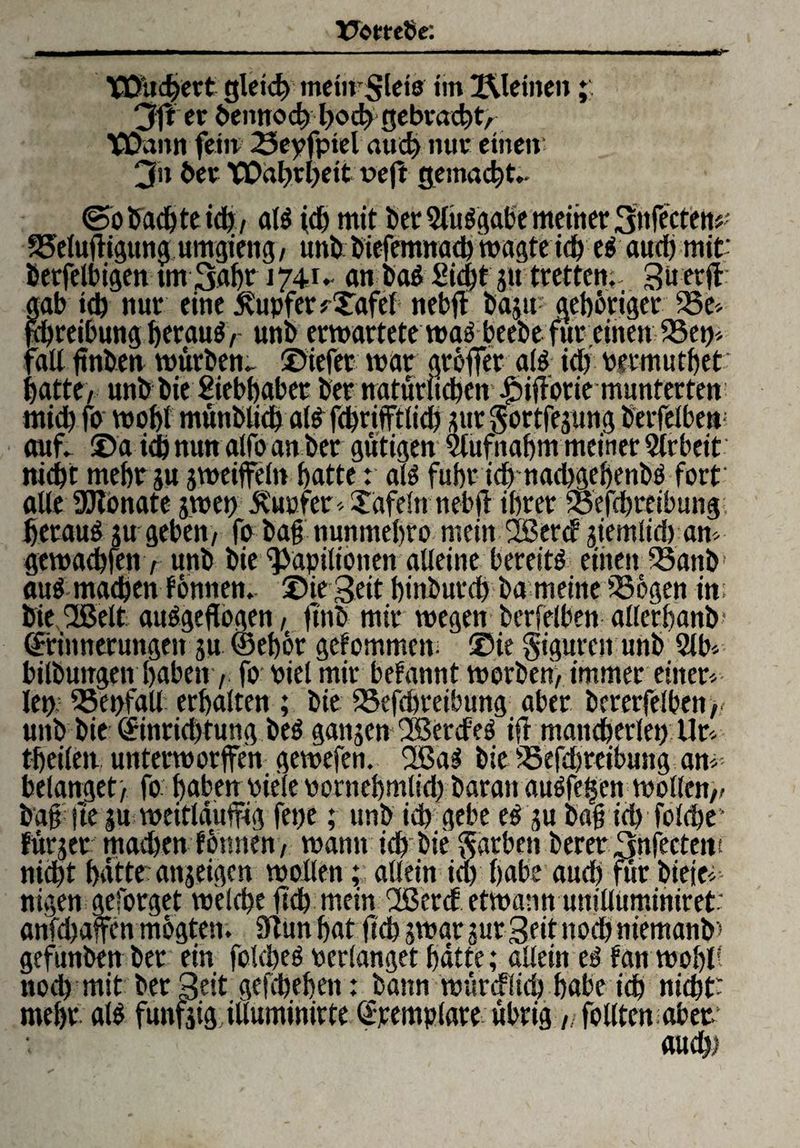 Vorrede:
Wuchert gleich mein Fleis im Kleinen;
Ist er dennoch hoch gebracht,
Wann sein Beyspiel auch nur einen
In der Wahrheit vest gemacht.
So dachte ich, als ich mit der Ausgabe meiner Insecten-
Belustigung umgieng, und diesemnach wagte ich es auch mit
derselbigen im Jahr 1741. an das Licht zu tretten. Zu erst
gab ich nur eine Kupfer-Tafel nebst dazu gehöriger Be-
schreibung heraus, und erwartete was beede für einen Bey-
fall finden würden. Dieser war grösser als ich vermuthet
hatte, und die Liebhaber der natürlichen Historie munterten
mich so wohl mündlich als schrifftlich zur Fortsezung derselben
auf. Da ich nun also an der gütigen Aufnahm meiner Arbeit
nicht mehr zu zweiffeln hatte: als fuhr ich nachgehends fort
alle Monate zwey Kupfer-Tafeln nebst ihrer Beschreibung
heraus zu geben, so daß nunmehro mein Werck ziemlich an-
gewachsen, und die Papilionen alleine bereits einen Band
aus machen können. Die Zeit hindurch da meine Bögen in
die Welt ausgeflogen, sind mir wegen derselben allerhand
Erinnerungen zu Gehör gekommen. Die Figuren und Ab-
bildungen haben, so viel mir bekannt worden, immer einer-
ley Beyfall erhalten; die Beschreibung aber dererselben,
und die Einrichtung des ganzen Werckes ist mancherley Ur-
theilen unterworffen gewesen. Was die Beschreibung an-
belanget, so haben viele vornehmlich daran aussetzen wollen,
daß sie zu weitläuffig seye; und ich gebe es zu daß ich solche
kürzer machen können, wann ich die Farben derer Insecten
nicht hätte anzeigen wollen; allein ich habe auch für dieje-
nigen gesorget welche sich mein Werck etwann unilluminiret
anschaffen mögten. Nun hat sich zwar zur Zeit noch niemand
gefunden der ein solches verlanget hätte; allein es kan wohl
noch mit der Zeit geschehen: dann würcklich habe ich nicht
mehr als funfzig illuminirte Exemplare übrig, sollten aber
auch